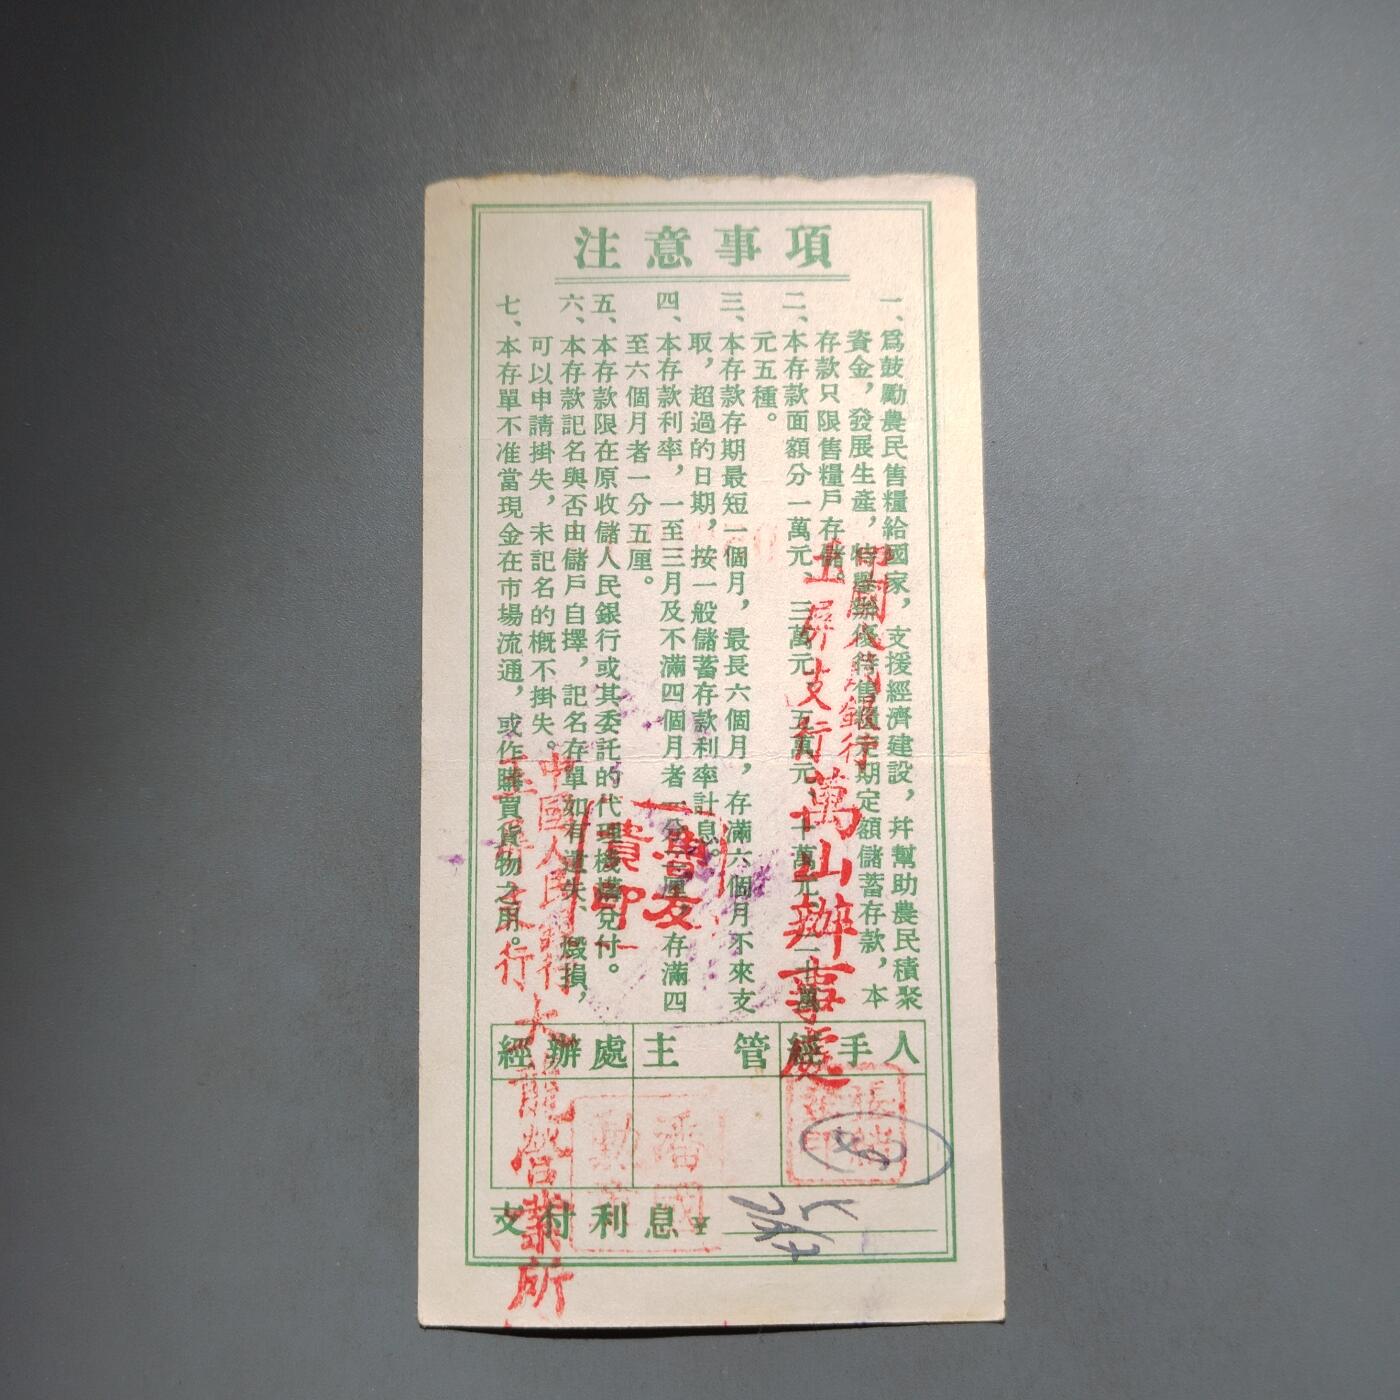 注意事項
一、爲鼓勵農民售糧給國家，支援經濟建設，幷幫助農民積聚
資金，發展生產，特舉辦優待售糧定期定額儲蓄存款，本
存款只限售糧戶存儲。
二、本存款面額分一萬元、三萬元、五萬元、十萬元、二十萬
元五種。
三、本存款存期最短一個月，最長六個月，存滿六個月不來支
取，超過的日期，按一般儲蓄存款利率計息。
四、本存款利率，一至三月及不滿四個月者一分二厘，存滿四
至六個月者一分五厘。
五、本存款限在原收儲人民銀行或其委託的代理機構兌付。
六、本存款記名與否由儲戶自擇，記名存單如有遺失、毀損，
可以申請掛失，未記名的概不掛失。
七、本存單不准當現金在市場流通，或作購買貨物之用。
中國人民銀行
玉屏支行萬山辦事處
中國人民銀行
玉屏支行
大龍營業所
經手人
主管
經辦處
支付利息¥